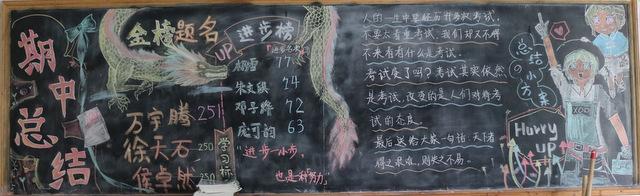 期中总结
金榜题名
UP
251
万宇腾
徐天石 250
侯卓然 250
学习标
进步榜
进步名次
杨雪 77
朱文祺 74
邓子烨 72
庞可韵 63
"进步一小步,
也是种努力"
人的一生中要经历许多次考试,
不要太看重考试,我们却又不得
不来看看什么是考试。
考试变了吗?考试其实依然
是考试,改变的是人们对待考
试的态度。
最后送给大家一句话,天下者
得之艰难,则失之不易。
总结小方案
Hurry
UP